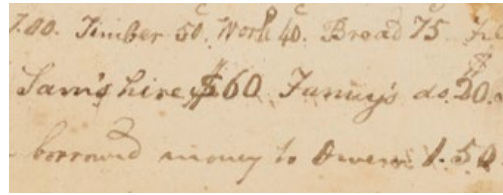 7.00. Timber 50. Work 40. Bread 75.
Sam's hire $60 Fanny's do. 20.
borrowed money to Owen 1.50